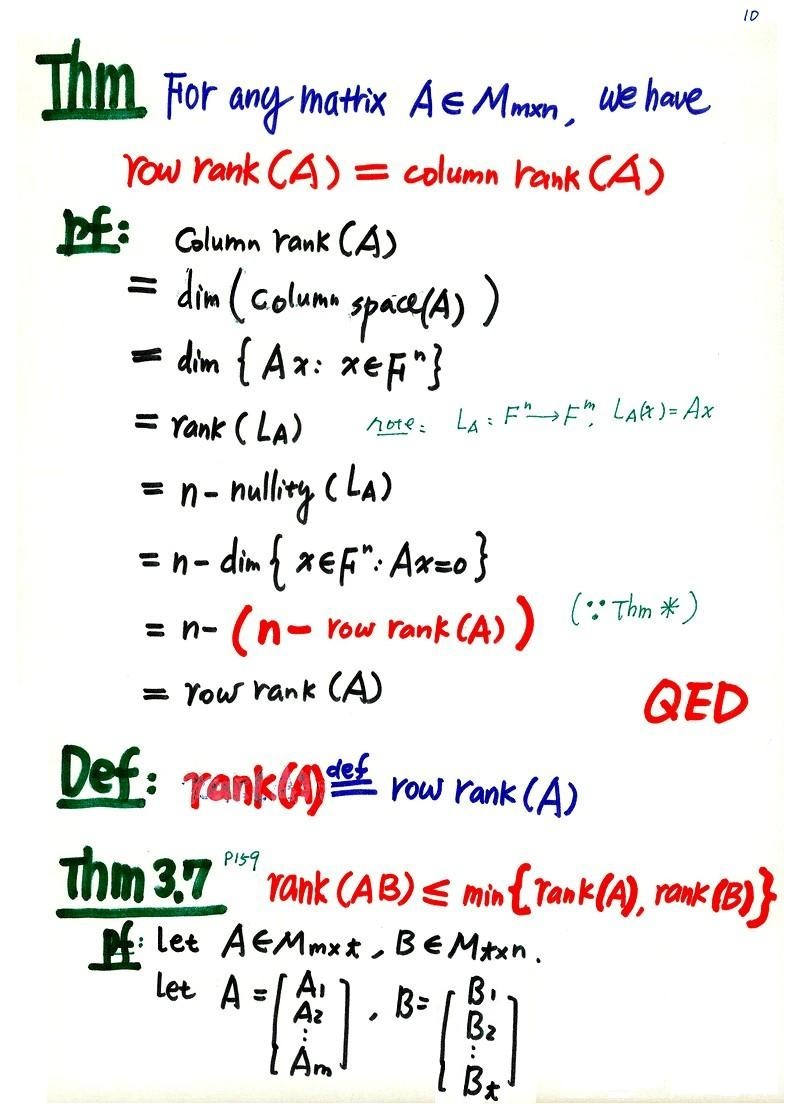 10
Thm For any matrix A ∈ Mm×n, we have
row rank(A) = column rank(A)
pf: Column rank(A)
= dim(Column space(A))
= dim{Ax: x∈Fⁿ}
= rank(LA) note: LA: Fⁿ→Fᵐ, LA(x)=Ax
= n-nullity(LA)
= n-dim{x∈Fⁿ: Ax=0}
= n-(n-row rank(A)) (∵Thm*)
= row rank(A) QED
Def: rank(A) def= row rank(A)
Thm 3.7 P159 rank(AB) ≤ min{rank(A), rank(B)}
pf: Let A∈Mm×t, B∈Mt×n.
Let A = [A1 A2 ⋮ Am], B = [B1 B2 ⋮ Bt]